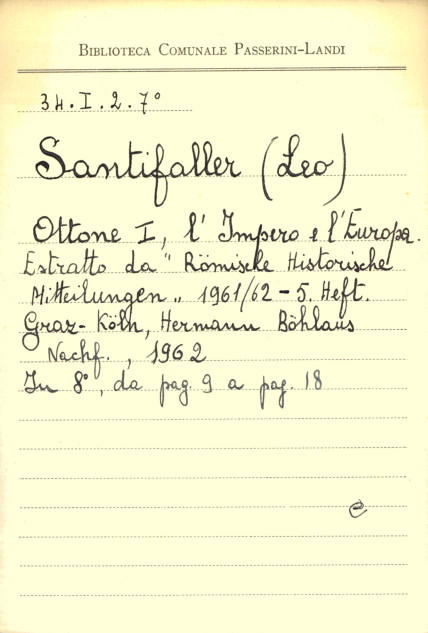 BIBLIOTECA COMUNALE PASSERINI-LANDI
34.I.2.7°
Santifaller (Leo)
Ottone I, l'Impero e l'Europa.
Estratto da "Römische Historische
Mitteilungen" 1961/62 - 5. Heft.
Graz-Köln, Hermann Böhlaus
Nachf., 1962
In 8°, da pag. 9 a pag. 18
e